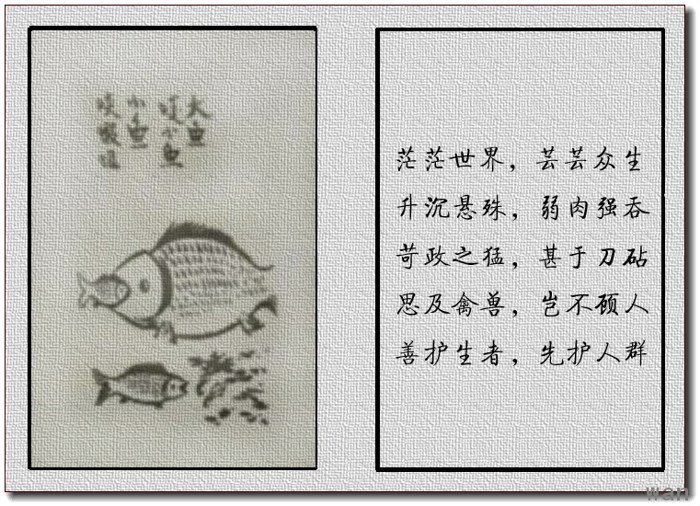 大魚
啖小魚
小魚
茫茫世界，芸芸众生
升沉悬殊，弱肉强吞
苛政之猛，甚于刀砧
思及禽兽，岂不顾人
善护生者，先护人群
wan